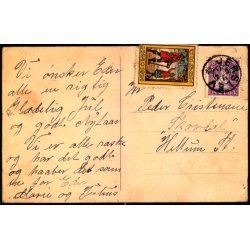 Vi ønsker Eder
alle en rigtig
Glædelig Jul
og godt Nytaar
Vi er alle raske
og har det godt
og haaber det sam
me for Eder
Marie og Julius
Hr
Peder Christensen
Hellum St.